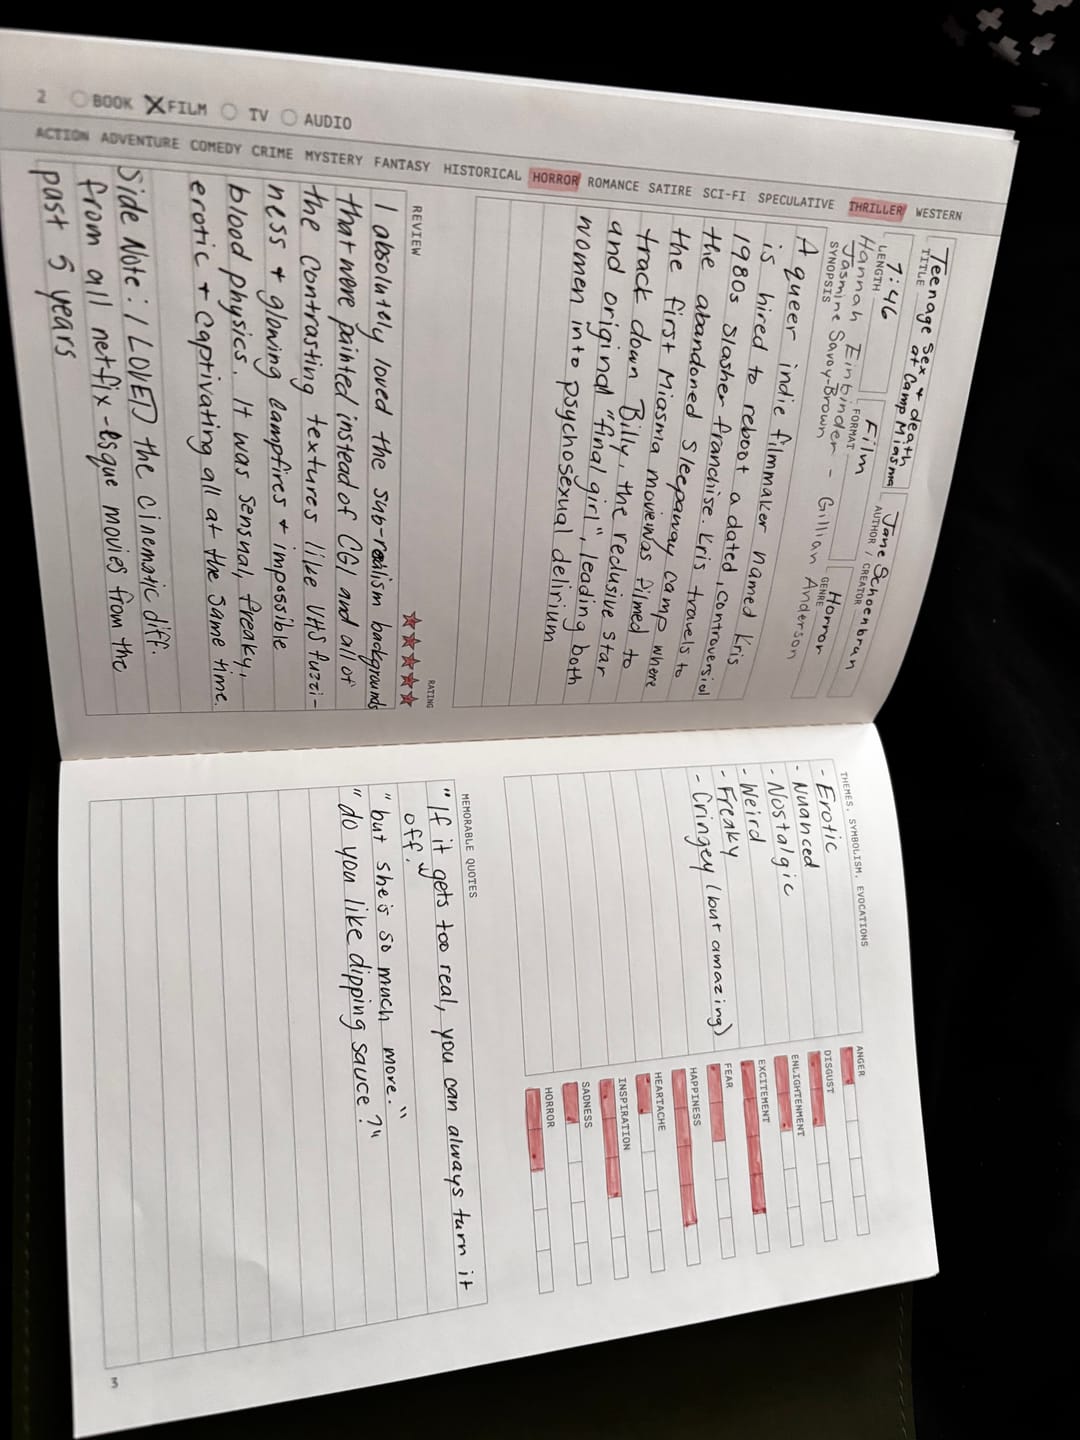 2 BOOK FILM TV AUDIO
ACTION ADVENTURE COMEDY CRIME MYSTERY FANTASY HISTORICAL HORROR ROMANCE SATIRE SCI-FI SPECULATIVE THRILLER WESTERN
Teenage Sex & death
at Camp Miasma
TITLE
Jane Schoenbran
AUTHOR / CREATOR
7:46
LENGTH
Film
FORMAT
Horror
GENRE
Hannah Einbinder - Gillian Anderson
Jasmine Savoy-Brown
SYNOPSIS
A queer indie filmmaker named Kris
is hired to reboot a dated, controversial
1980s slasher franchise. Kris travels to
the abandoned sleepaway camp where
the first Miasma movie was filmed to
track down Billy, the reclusive star
and original "final girl", leading both
women into psychosexual delirium
REVIEW
RATING
I absolutely loved the sub-realism backgrounds
that were painted instead of CGI and all of
the contrasting textures like VHS fuzzi-
ness & glowing campfires & impossible
blood physics. It was sensual, freaky,
erotic & captivating all at the same time.
Side Note: I LOVED the cinematic diff.
from all netflix-esque movies from the
past 5 years
THEMES, SYMBOLISM, EVOCATIONS
- Erotic
- Nuanced
- Nostalgic
- Weird
- Freaky
- Cringey (but amazing)
ANGER
DISGUST
ENLIGHTENMENT
EXCITEMENT
FEAR
HAPPINESS
HEARTACHE
INSPIRATION
SADNESS
HORROR
MEMORABLE QUOTES
"If it gets too real, you can always turn it
off."
"but she's so much more."
"do you like dipping sauce?"
3